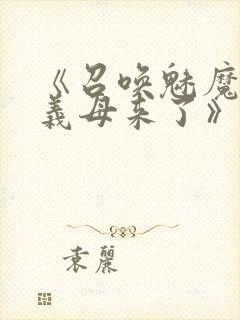 《召唤魅魔
义母来了》
袁丽